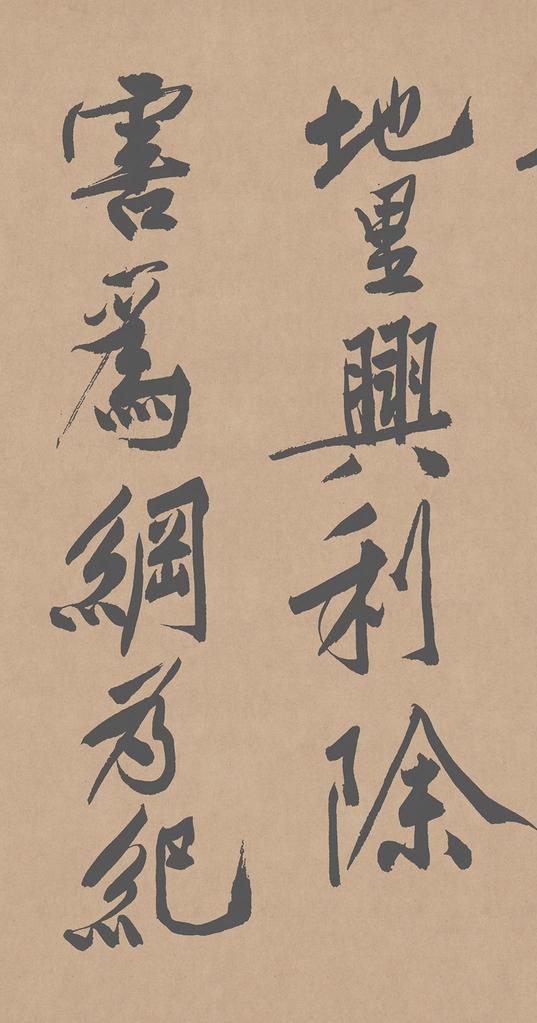 地里興利除
害爲綱為紀